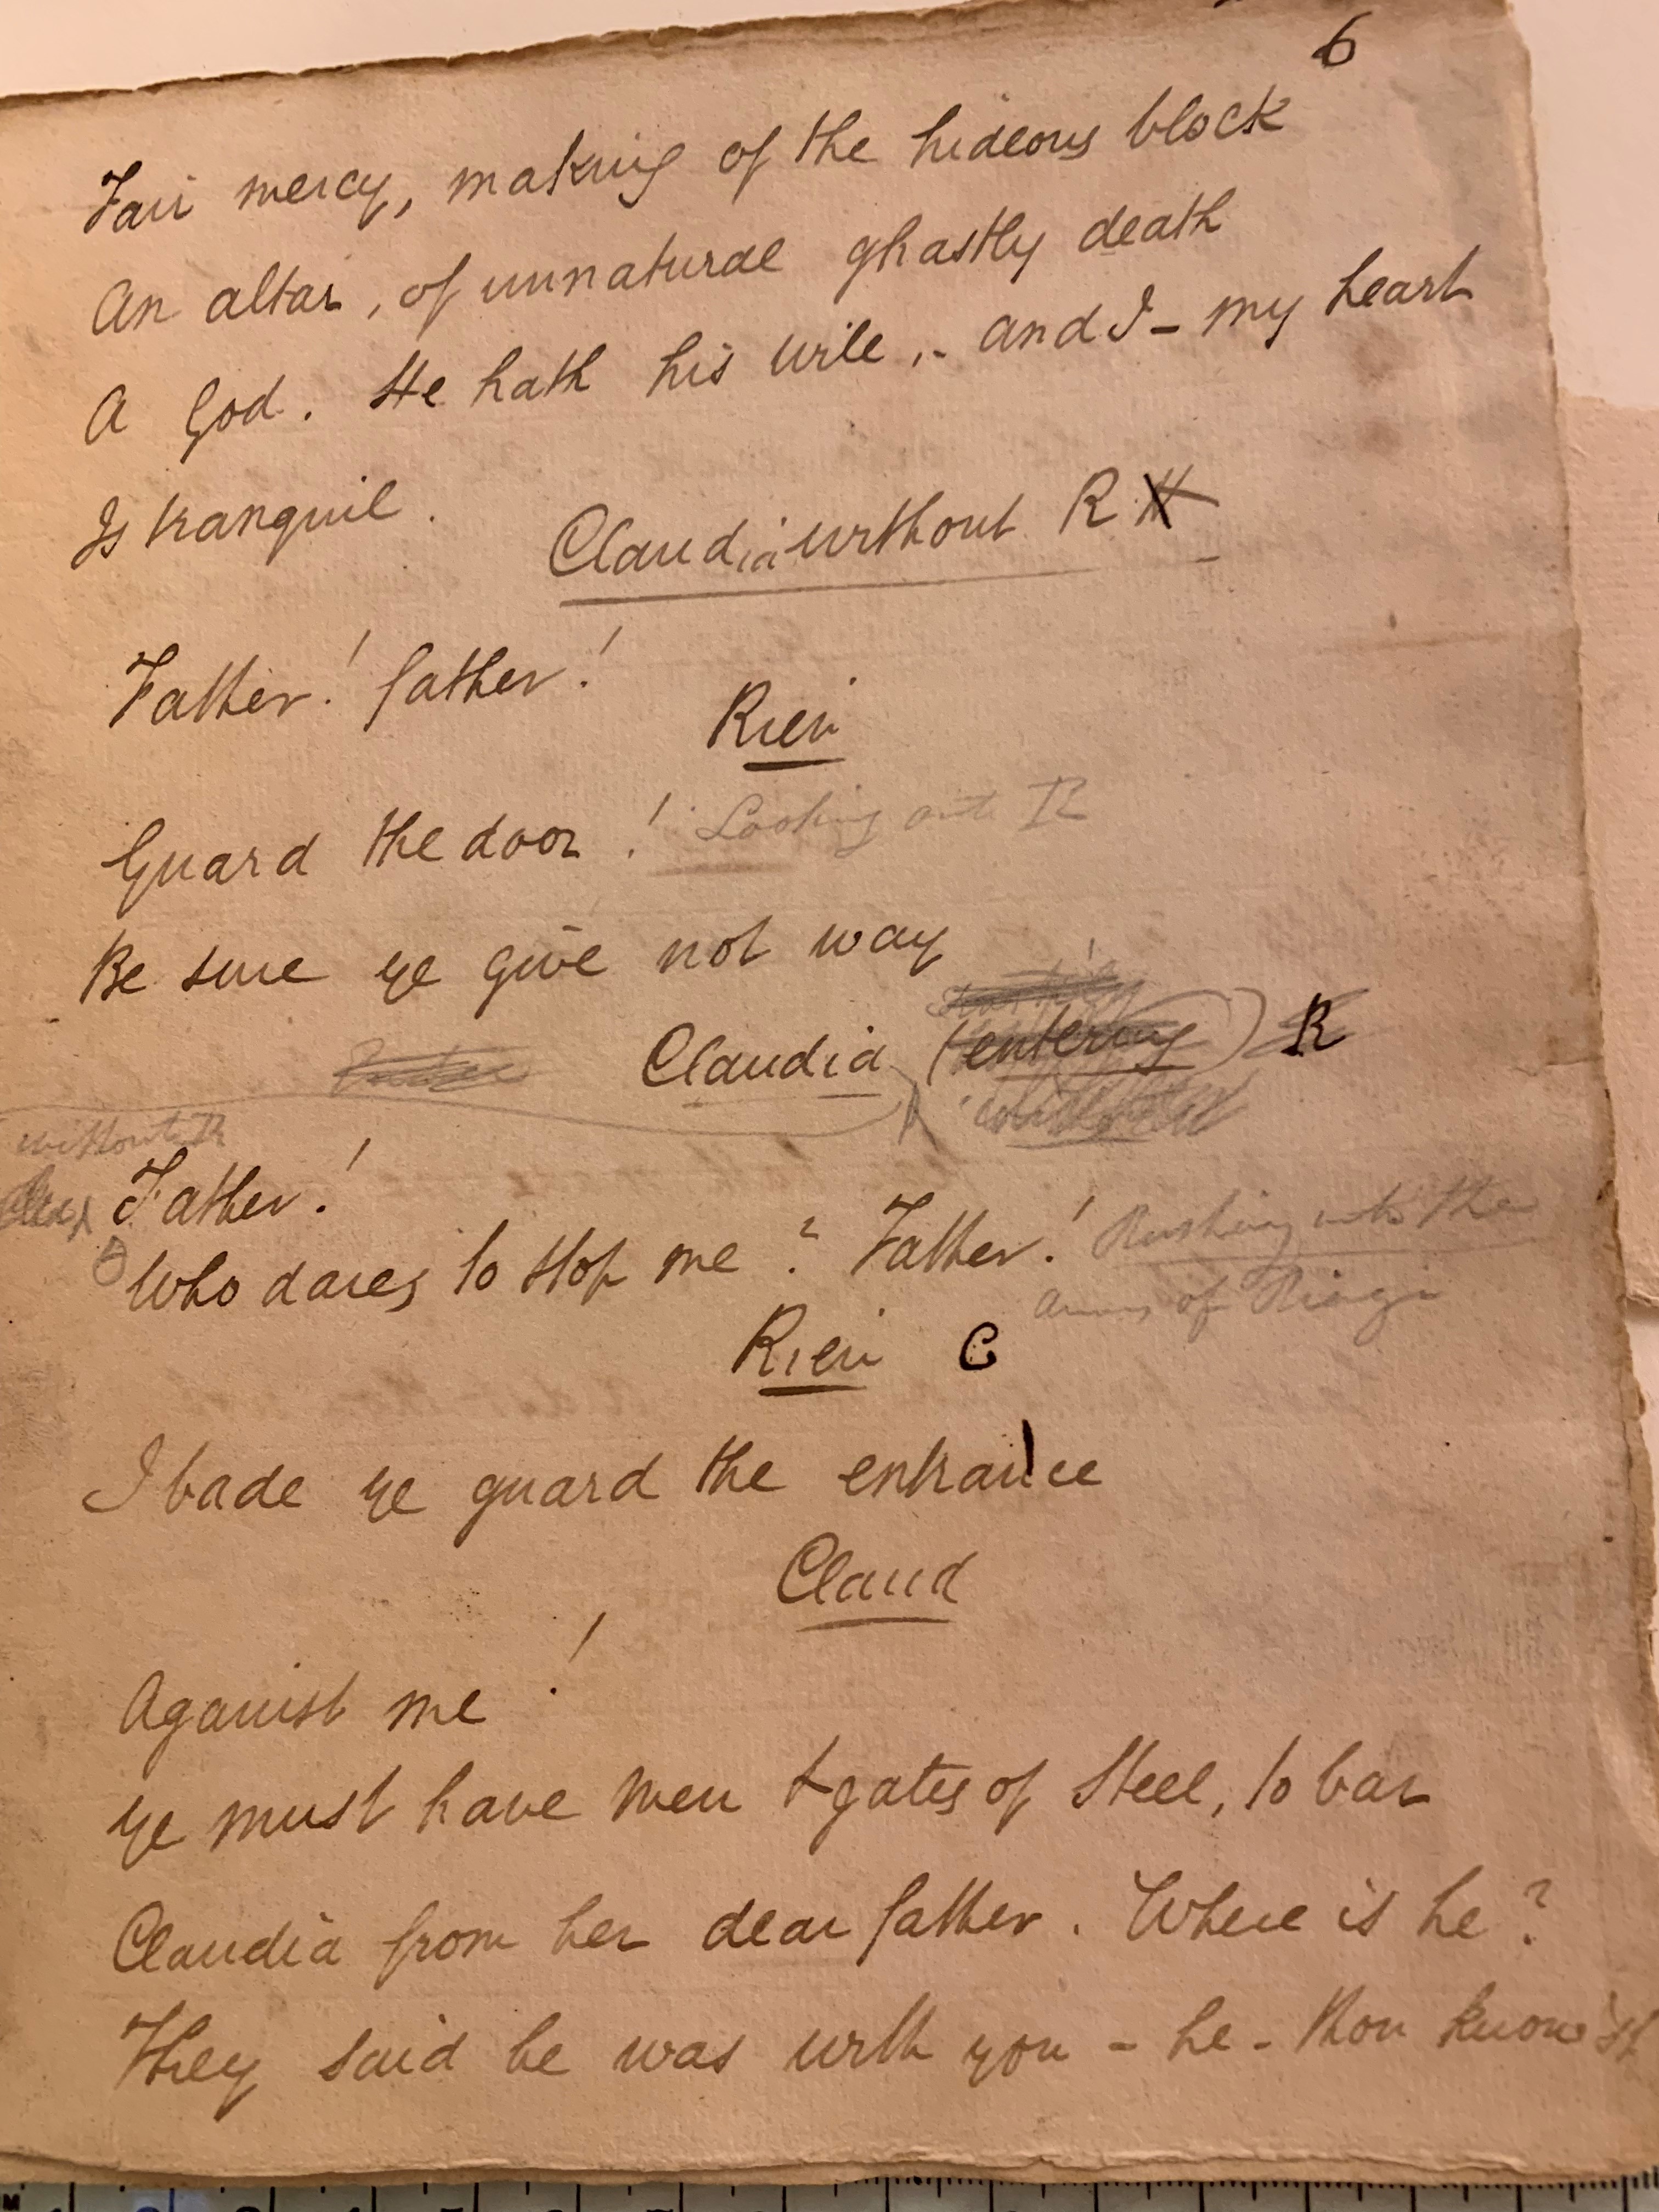 6
Fair mercy, making of the hideous block
An altar, of unnatural ghastly death
A God. He hath his will, - and I - my heart
Is tranquil.
Claudia without R
Father! father!
Rien
Guard the door! Looking out R
Be sure ye give not way
Claudia (entering) R
without R
Father!
Who dares to stop me? Father! Rushing into the
arms of Rienzi
Rien C
I bade ye guard the entrance
Claud
Against me!
Ye must have men & gates of steel, to bar
Claudia from her dear father. Where is he?
They said he was with you - he - thou know'st